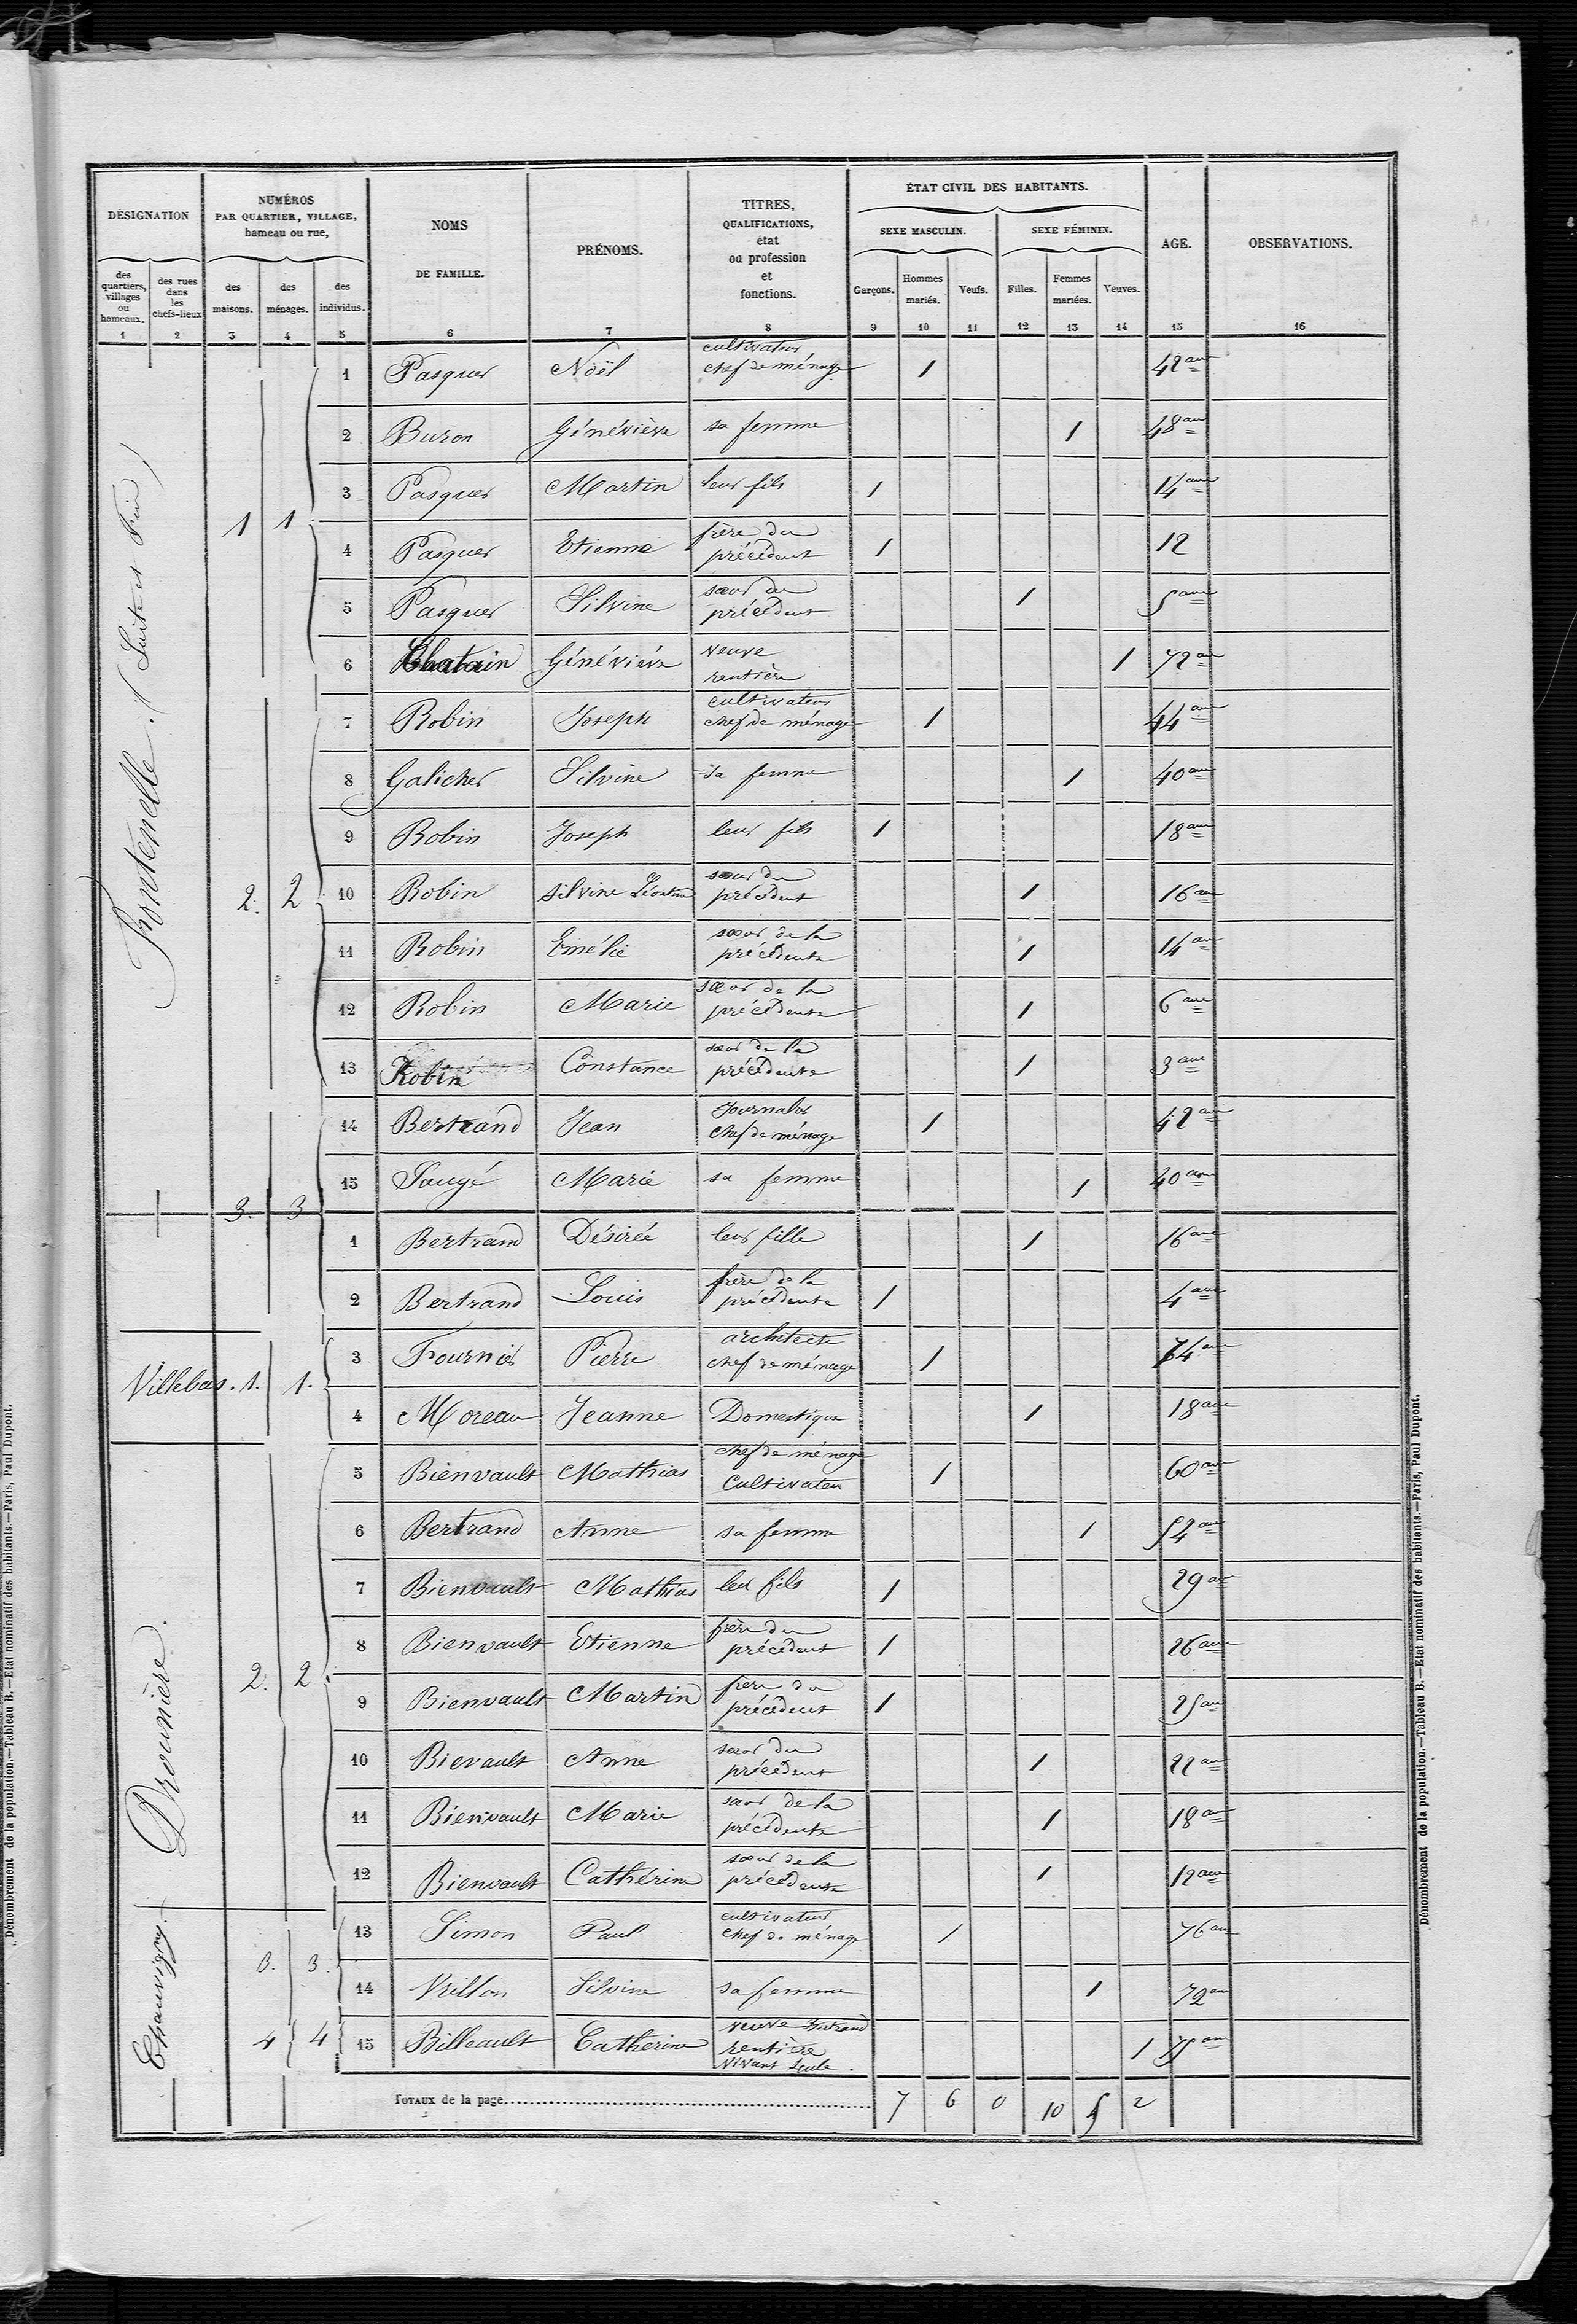 DÉSIGNATION
NUMÉROS
PAR QUARTIER, VILLAGE,
hameau ou rue,
NOMS
DE FAMILLE.
PRÉNOMS.
TITRES,
QUALIFICATIONS,
état
ou profession
et
fonctions.
ÉTAT CIVIL DES HABITANTS.
SEXE MASCULIN.
SEXE FÉMININ.
AGE.
OBSERVATIONS.
des quartiers, villages ou hameaux.
des rues dans les chefs-lieux
des maisons.
des ménages.
des individus.
Garçons.
Hommes mariés.
Veufs.
Filles.
Femmes mariées.
Veuves.
1 2 3 4 5 6 7 8 9 10 11 12 13 14 15 16
Frontenelle. (Suite et Fin)
1 1
1 Pasquer Noël cultivateur chef de ménage 1 42 ans
2 Buron Généviève sa femme 1 48 ans
3 Pasquer Martin leur fils 1 14 ans
4 Pasquer Etienne frère du précédent 1 12
5 Pasquer Silvine sœur du précédent 1 5 ans
6 Chatain Généviève veuve rentière 1 72 ans
2. 2
7 Robin Joseph cultivateur chef de ménage 1 44 ans
8 Galicher Silvine sa femme 1 40 ans
9 Robin Joseph leur fils 1 18 ans
10 Robin Silvine sœur du précédent 1 16 ans
11 Robin Emélie sœur de la précédente 1 14 ans
12 Robin Marie sœur de la précédente 1 6 ans
13 Robin Constance sœur de la précédente 1 3 ans
3. 3
14 Bertrand Jean Journalier chef de ménage 1 42 ans
15 Saugé Marie sa femme 1 40 ans
1 Bertrand Désirée leur fille 1 16 ans
2 Bertrand Louis frère de la précédente 1 4 ans
Villebas. 1. 1.
3 Fournier Pierre architecte chef de ménage 1 74 ans
4 Moreau Jeanne Domestique 1 18 ans
Drounière.
2. 2
5 Bienvault Mathias chef de ménage Cultivateur 1 60 ans
6 Bertrand Anne sa femme 1 52 ans
7 Bienvault Mathias leur fils 1 29 ans
8 Bienvault Etienne frère du précédent 1 26 ans
9 Bienvault Martin frère du précédent 1 25 ans
10 Bievault Anne sœur du précédent 1 22 ans
11 Bienvault Marie sœur de la précédente 1 18 ans
12 Bienvault Cathérine sœur de la précédente 1 12 ans
Chauvigny.
3. 3.
13 Simon Paul cultivateur chef de ménage 1 76 ans
14 Silvine sa femme 1 72 ans
4 4
15 Billeault Catherine veuve rentière vivant seule. 1 75 ans
TOTAUX de la page 7 6 0 10 5 2
Dénombrement de la population.—Tableau B.—État nominatif des habitants.—Paris, Paul Dupont.
Dénombrement de la population.—Tableau B.—État nominatif des habitants.—Paris, Paul Dupont.